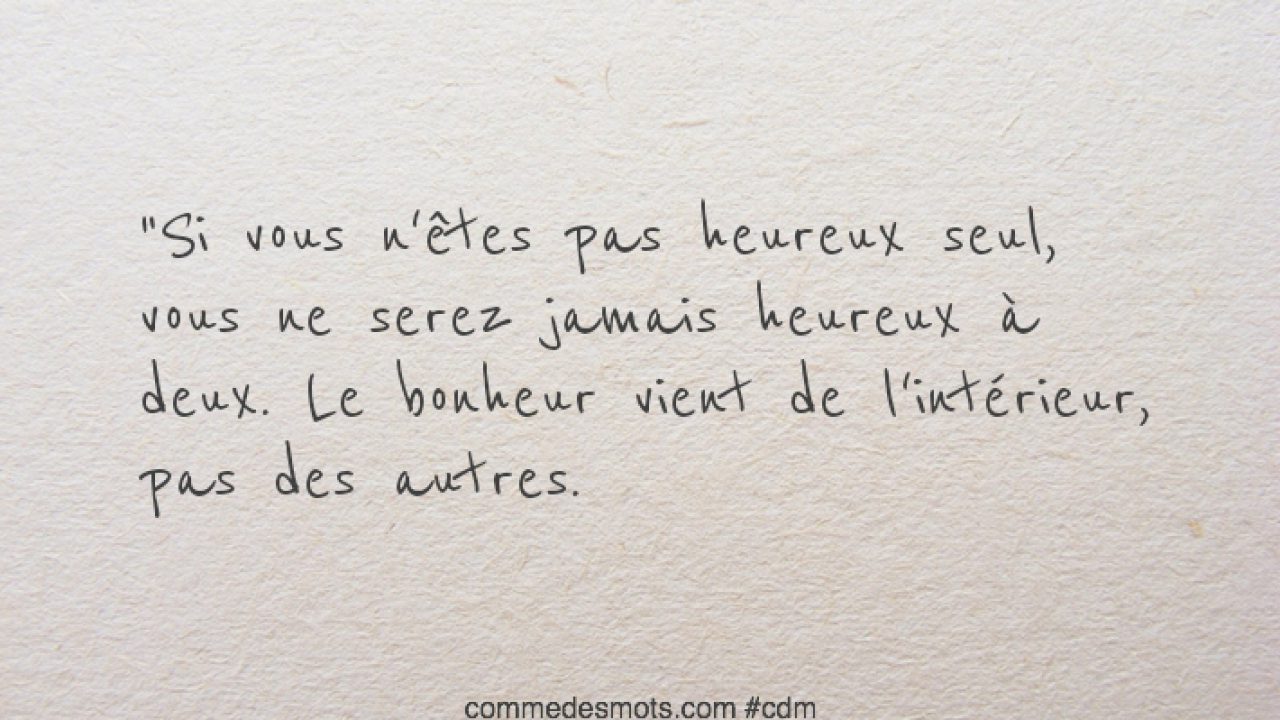 "Si vous n'êtes pas heureux seul,
vous ne serez jamais heureux à
deux. Le bonheur vient de l'intérieur,
pas des autres.
commedesmots.com #cdm